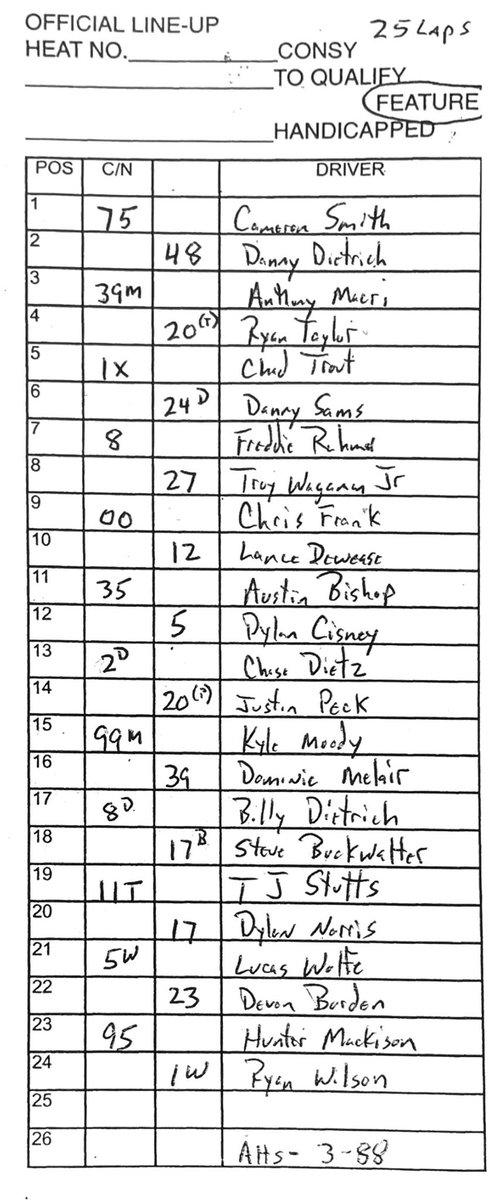 OFFICIAL LINE-UP 25 LAPS
HEAT NO. CONSY
TO QUALIFY
FEATURE
HANDICAPPED
POS C/N DRIVER
1 75 Cameron Smith
2 48 Danny Dietrich
3 39M Anthony Macri
4 20(T) Ryan Taylor
5 1X Chad Trout
6 24D Danny Sams
7 8 Freddie Rahmer
8 27 Troy Wagaman Jr
9 00 Chris Frank
10 12 Lance DEWEASE
11 35 Austin Bishop
12 5 Dylan Cisney
13 2D Chase Dietz
14 20(P) Justin PECK
15 99M Kyle Moody
16 39 Dominic Melair
17 8D Billy Dietrich
18 17B Steve Buckwalter
19 11T T J Stutts
20 17 Dylan Norris
21 5W Lucas Wolfe
22 23 Devon Borden
23 95 Hunter Mackison
24 1W Ryan Wilson
25
26 Alts- 3-88